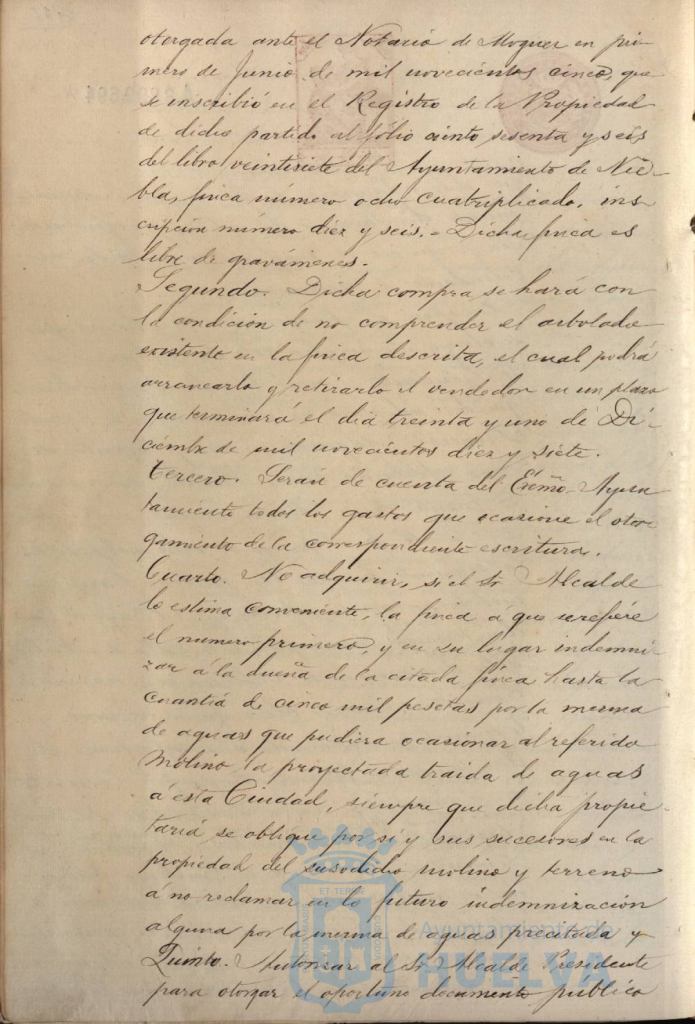 otorgada ante el Notario de Moguer en pri-
mero de Junio de mil novecientos cinco, que
se inscribió en el Registro de la Propiedad
de dicho partido al fólio ciento sesenta y seis
del libro veintisiete del Ayuntamiento de Nie-
bla, finca número ocho cuatriplicado, ins-
cripción número diez y seis. = Dicha finca es
libre de gravámenes.
Segundo. Dicha compra se hará con
la condición de no comprender el arbolado
existente en la finca descrita, el cual podrá
arrancarlo y retirarlo el vendedor en un plazo
que terminará el dia treinta y uno de Di-
ciembre de mil novecientos diez y siete.
Tercero. Serán de cuenta del Excmo. Ayun
tamiento todos los gastos que ocasione el otor
gamiento de la correspondiente escritura.
Cuarto. No adquirir, si el Sr Alcalde
lo estima conveniente, la finca á que se refiere
el número primero, y en su lugar indemni-
zar á la dueña de la citada finca hasta la
cuantiá de cinco mil pesetas por la merma
de aguas que pudiera ocasionar al referido
Molino la proyectada traida de aguas
á esta Ciudad, siempre que dicha propie-
taria se oblique por sí y sus sucesores en la
propiedad del susodicho molino y terreno
á no reclamar en lo futuro indemnización
alguna por la merma de aguas precitada y
Quinto. Autorizar al Sr Alcalde Presidente
para otorgar el oportuno documento público
Ayuntamiento de
HUELVA